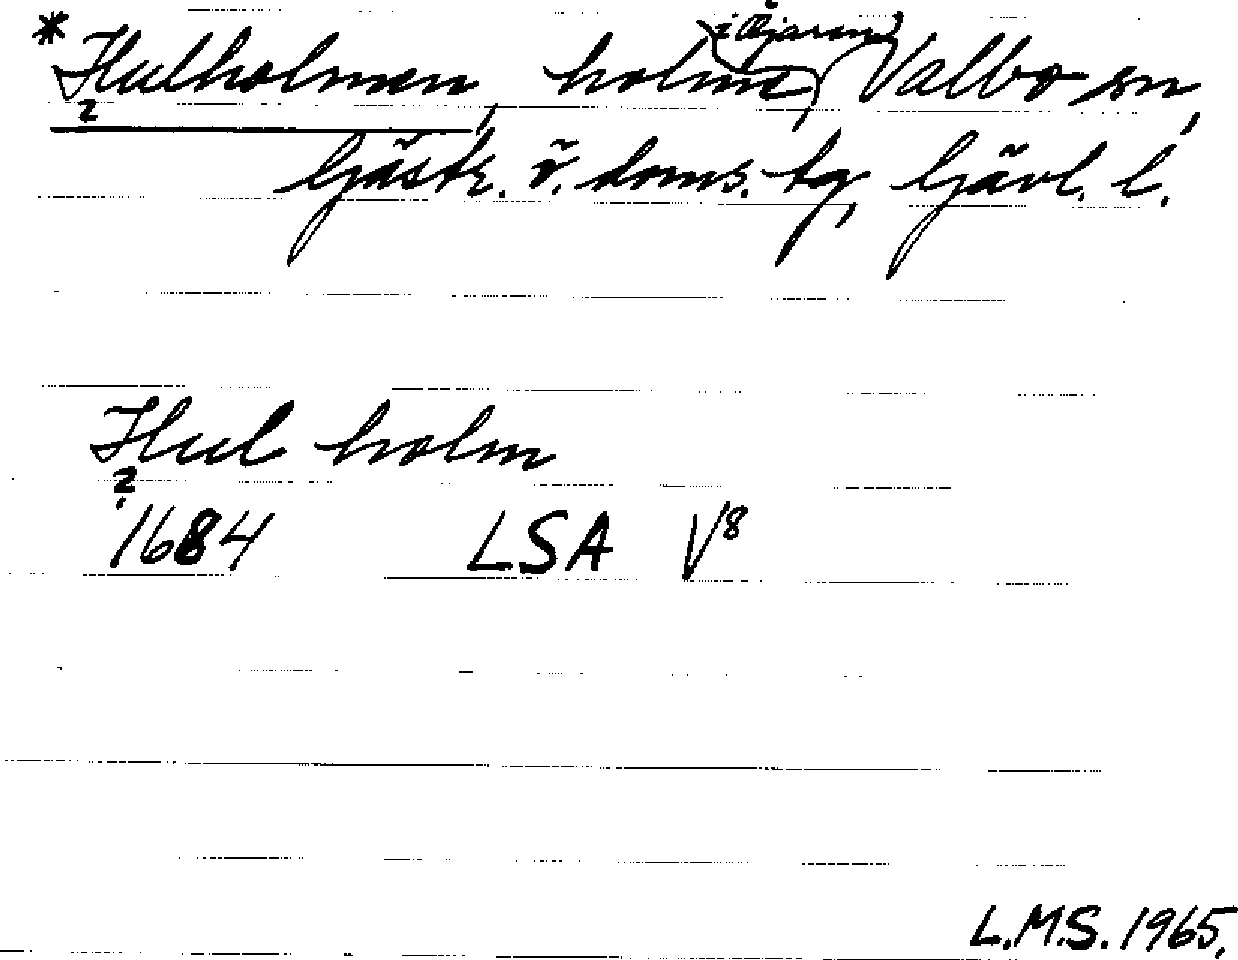 * Hulholmen, holme (i Öjaren) Valbo sn,
?
Gästr. ö. doms. tg, Gävl. l.
Hul holm
?
1684 LSA V8
L.M.S. 1965.